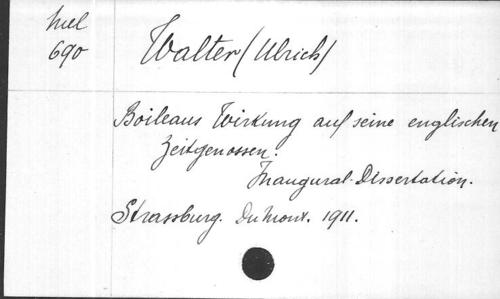 Mel
690
Walter (Ulrich)
Boileaus Wirkung auf seine englischen
Zeitgenossen.
Inaugural-Dissertation.
Strassburg. DuMont. 1911.